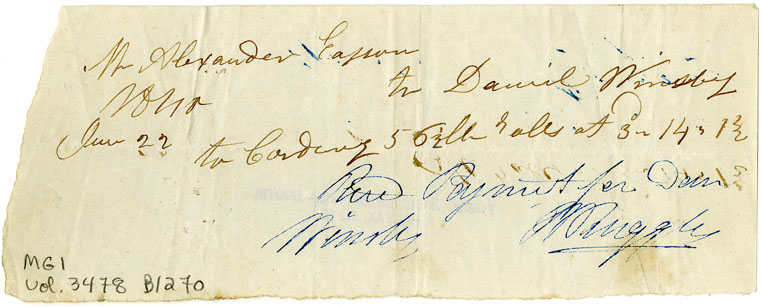 Mr Alexander Easson
to Daniel Winsby
Jan 22 to Carding 56½ lb rolls at 3d 14" 1½
Recd Payment for Dan
Winsby W Ruggles
MG1
Vol. 3478 B1270